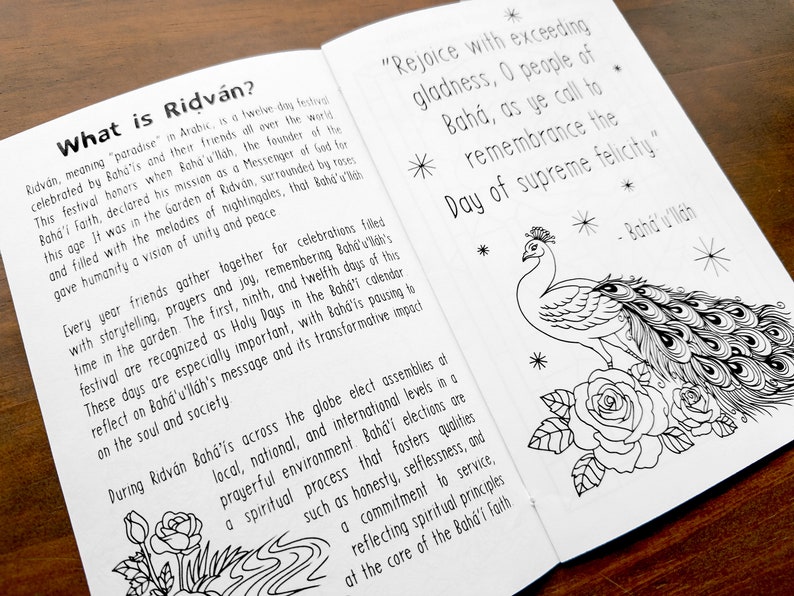 What is Riḍván?
Ridván, meaning "paradise" in Arabic, is a twelve-day festival
celebrated by Bahá'ís and their friends all over the world.
This festival honors when Bahá'u'lláh, the founder of the
Bahá'í Faith, declared his mission as a Messenger of God for
this age. It was in the Garden of Ridván, surrounded by roses
and filled with the melodies of nightingales, that Bahá'u'lláh
gave humanity a vision of unity and peace.
Every year friends gather together for celebrations filled
with storytelling, prayers and joy, remembering Bahá'u'lláh's
time in the garden. The first, ninth, and twelfth days of this
festival are recognized as Holy Days in the Bahá'í calendar.
These days are especially important, with Bahá'ís pausing to
reflect on Bahá'u'lláh's message and its transformative impact
on the soul and society.
During Ridván Bahá'ís across the globe elect assemblies at
local, national, and international levels in a
prayerful environment. Bahá'í elections are
a spiritual process that fosters qualities
such as honesty, selflessness, and
a commitment to service,
reflecting spiritual principles
at the core of the Bahá'í Faith.
"Rejoice with exceeding
gladness, O people of
Bahá, as ye call to
remembrance the
Day of supreme felicity."
- Bahá'u'lláh